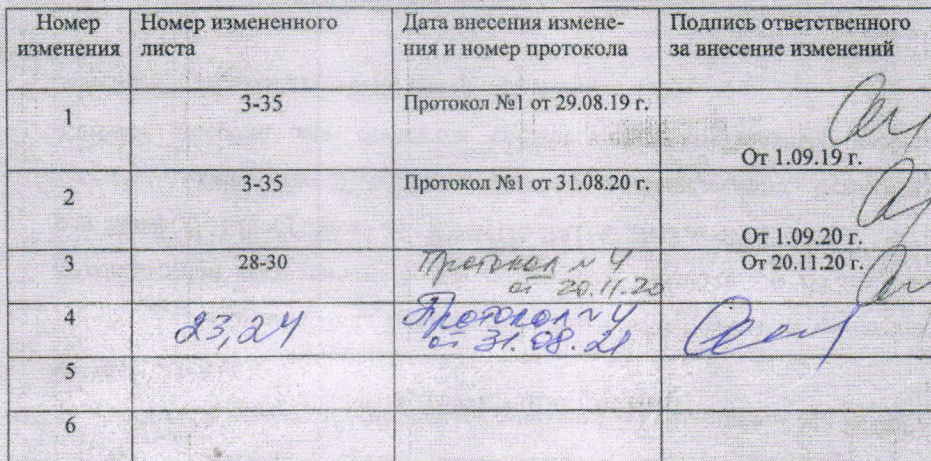 Номер изменения
Номер измененного листа
Дата внесения измене-
ния и номер протокола
Подпись ответственного
за внесение изменений
1
3-35
Протокол №1 от 29.08.19 г.
От 1.09.19 г.
2
3-35
Протокол №1 от 31.08.20 г.
От 1.09.20 г.
3
28-30
Протокол № 4
от 20.11.20
От 20.11.20 г.
4
23,24
Протокол № 4
от 31.08.21
5
6